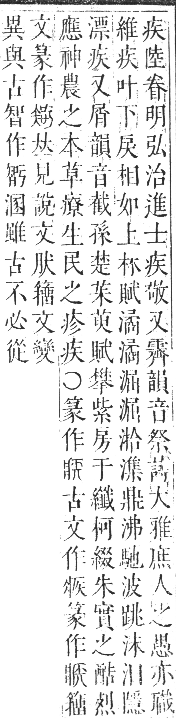 疾陸眷明弘治進士疾敬又霽韻音祭詩大雅庶人之愚亦職
維疾叶下戾相如上林賦潏潏淈淈湁潗鼎沸馳波跳沫汩㶏
漂疾又屑韻音截孫楚茱萸賦攀紫房于纖柯綴朱實之酷烈
應神農之本草療生民之疹疾○篆作古文作篆作籀
文篆作𠀤見說文肰籒文變
異與古智作溷雖古不必從